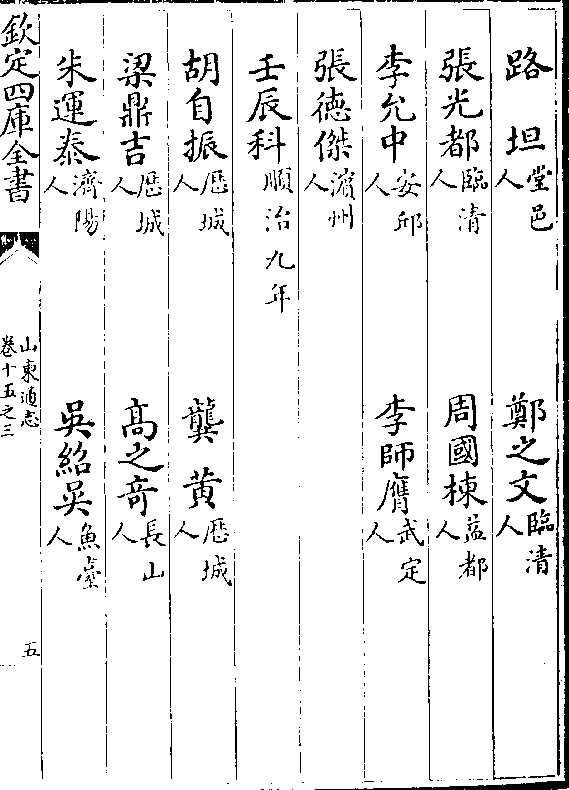 路坦堂邑人　鄭之文臨清人
張光都臨清人　周國棟益都人
李允中安邱人　李師膺武定人
張德傑濱州人
壬辰科順治九年
胡自振歷城人　龔黄歷城人
梁鼎吉歷城人　髙之奇長山人
朱運泰濟陽人　吳紹吳魚臺人
欽定四庫全書
山東通志
卷十五之三
五